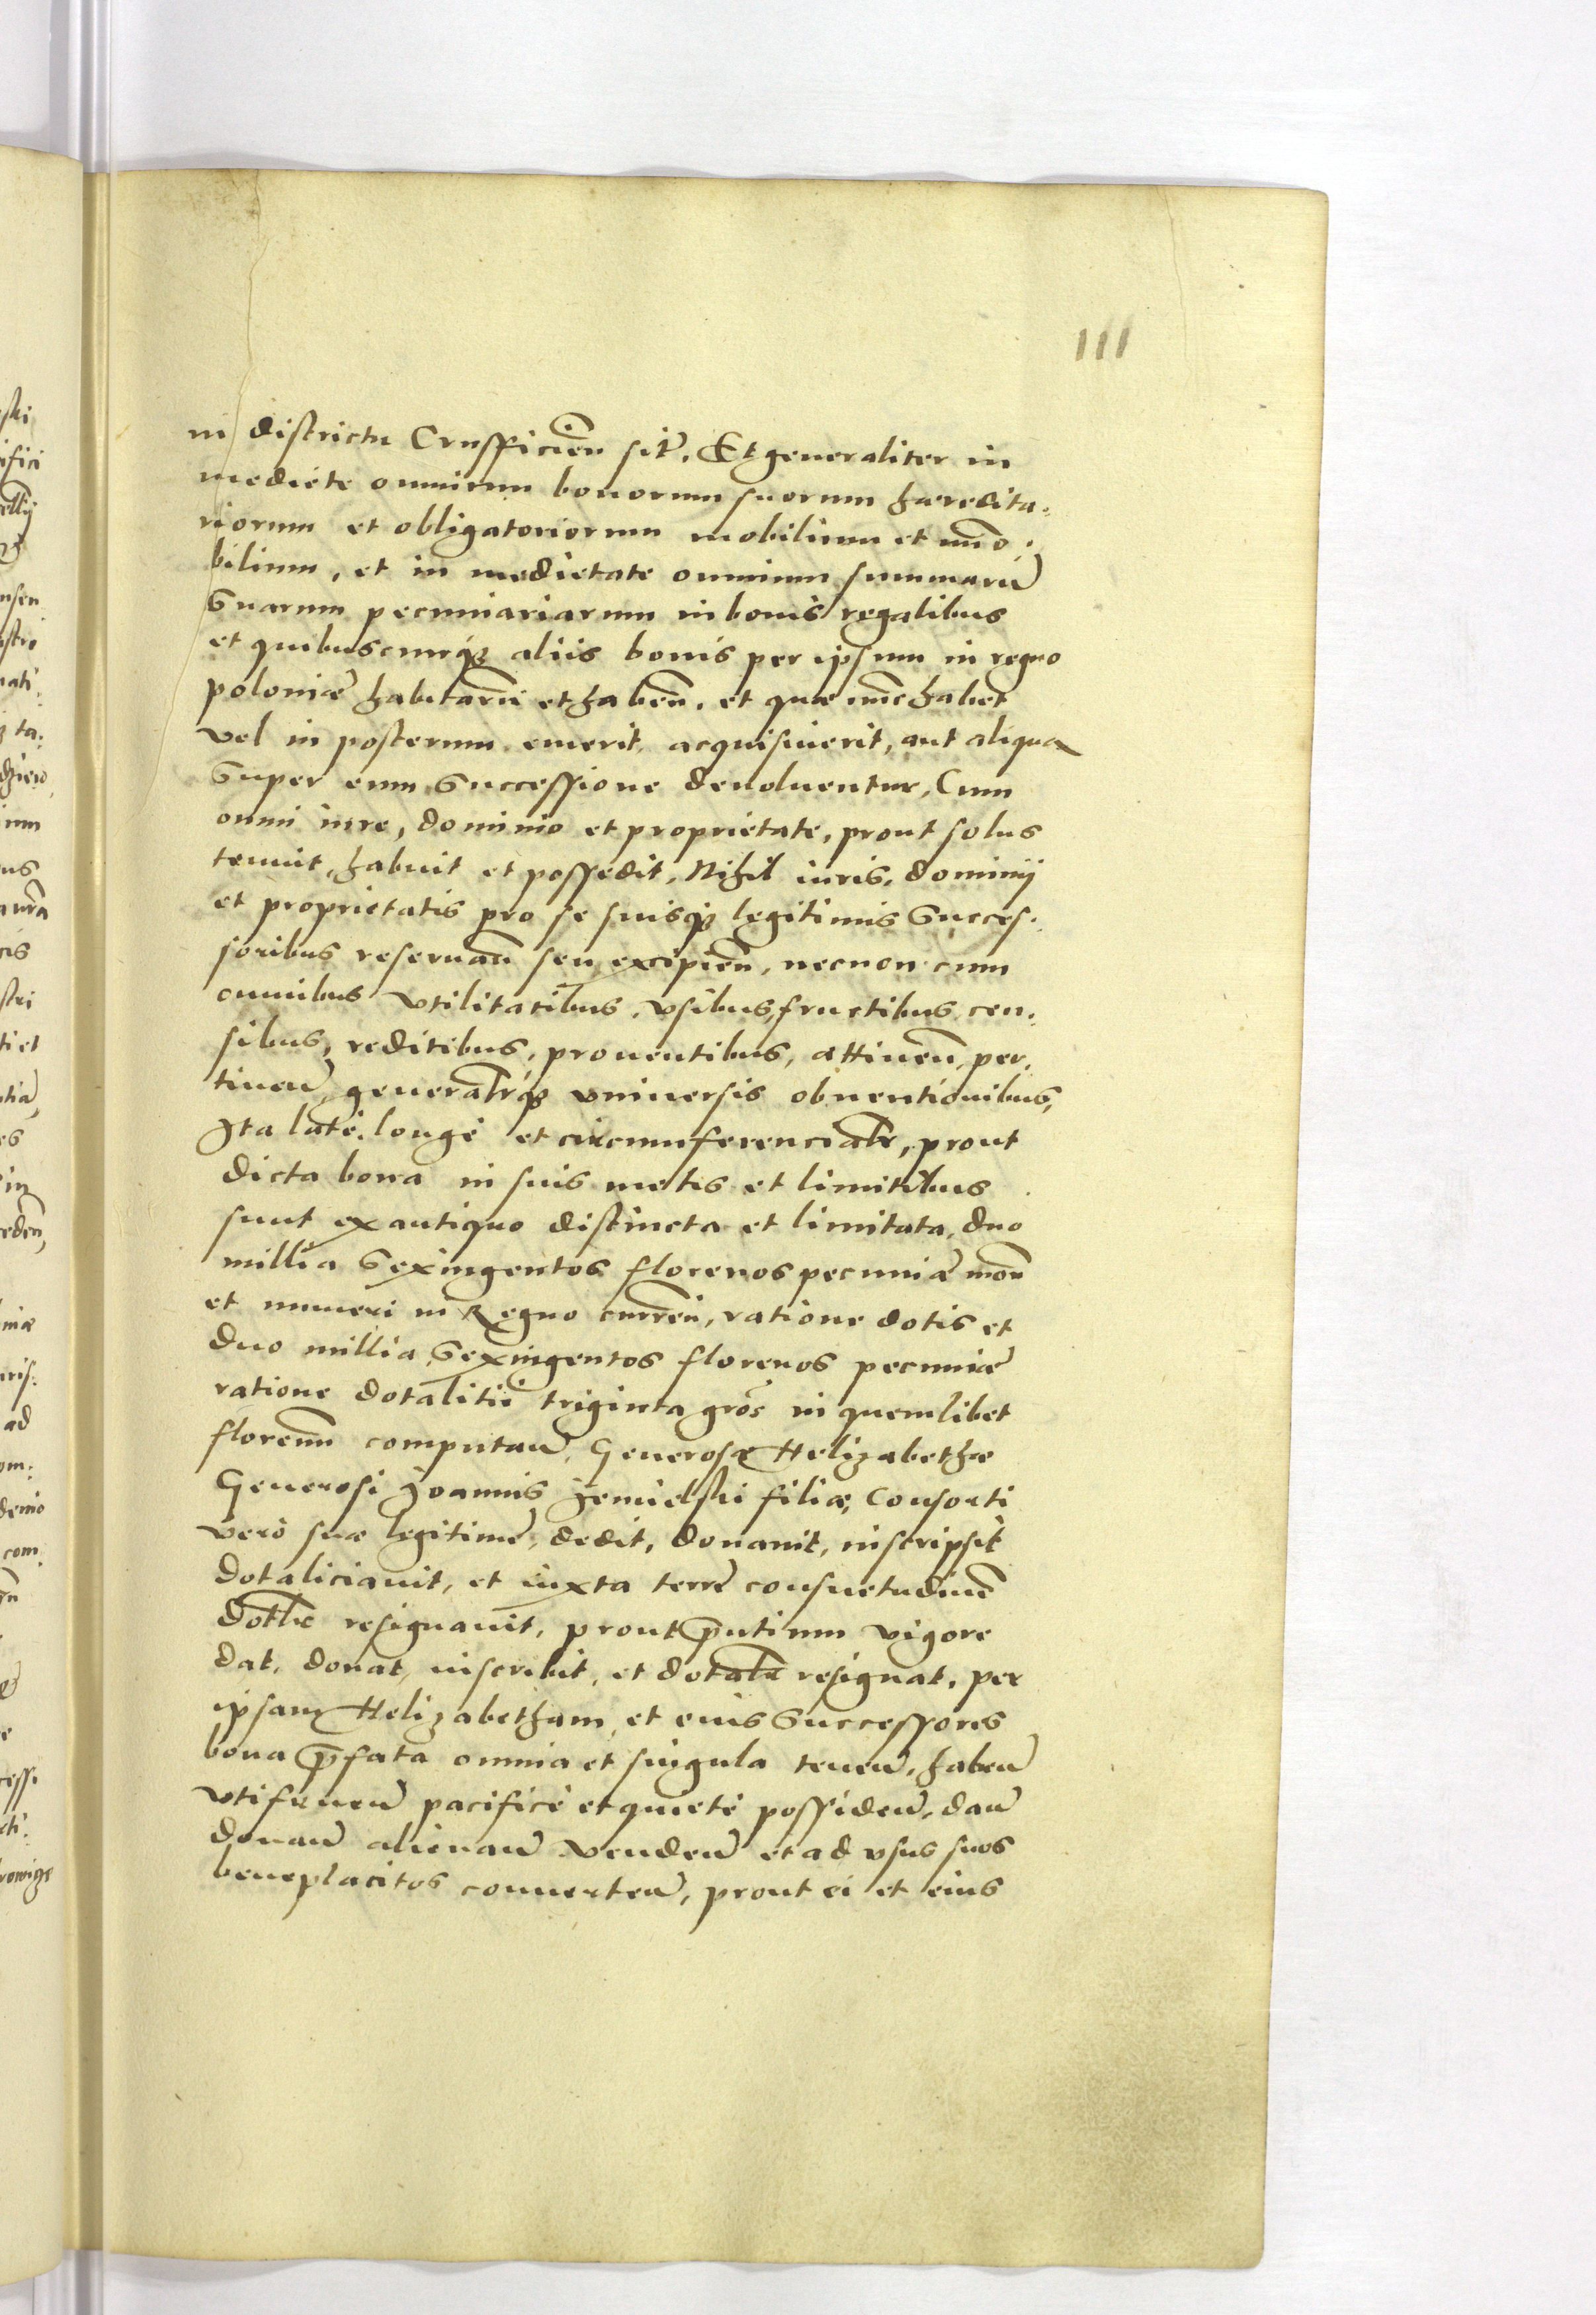 111
in districtu Crusficien̄ sit̄. Et generaliter in
mediete omnium bonorum suorum hæredita„
riorum et obligatoriorum mobilium et im̄o„
bilium, et in medietate omnium summarū
Suarum pecuniariarum in bonis regalibus
et quibuscunq₃ aliis bonis per ipsum in regno
poloniæ habitarū et haben̄. et quæ nunc habet
vel in posterum emerit, acquisiuerit, aut aliqua
Super eum Successione deuoluentur, Cum
omni iure, dominio et proprietate, prout solus
tenuit, habuit et possedit, Nihil iuris, dominij
et proprietatis pro se suisq₃ legitimis Succes„
soribus reseruan̄ seu excipien̄, necnon cum
omnibus vtilitatibus, vsibus, fructibus, cen„
sibus, reditibus, prouentibus, attinen̄, per„
tinen̄, generalr̄q₃ vniuersis obuentionibus,
Ita latè, longè et circumferencialr̄, prout
dicta bona in suis metis et limitibus
sunt ex antiquo distincta et limitata, duo
millia Sexingentos florenos pecuniæ mon̄
et numeri in Regno curren̄, ratione dotis et
duo millia Sexingentos florenos pecuniæ
ratione dotalitii triginta gros̄ in quemlibet
florenum computan̄, Generosæ Helizabethæ
Generosi Joannis Jemielski filiæ, Consorti
verò suæ legitimæ, dedit, donauit, inscripsit
dotaliciauit, et iuxta terræ consuetudinē
dotlr̄ resignauit, prout p̄ntium vigore
dat, donat, inscribit, et dotalr̄ resignat, per
ipsam Helizabetham et eius Successores
bona p̄fata omnia et singula tenen̄, haben̄
vtifruen̄ pacificè et quietè possiden̄, dan̄
donan̄ alienan̄ venden̄ et ad vsus suos
beneplacitos conuerten̄, prout ei et eius